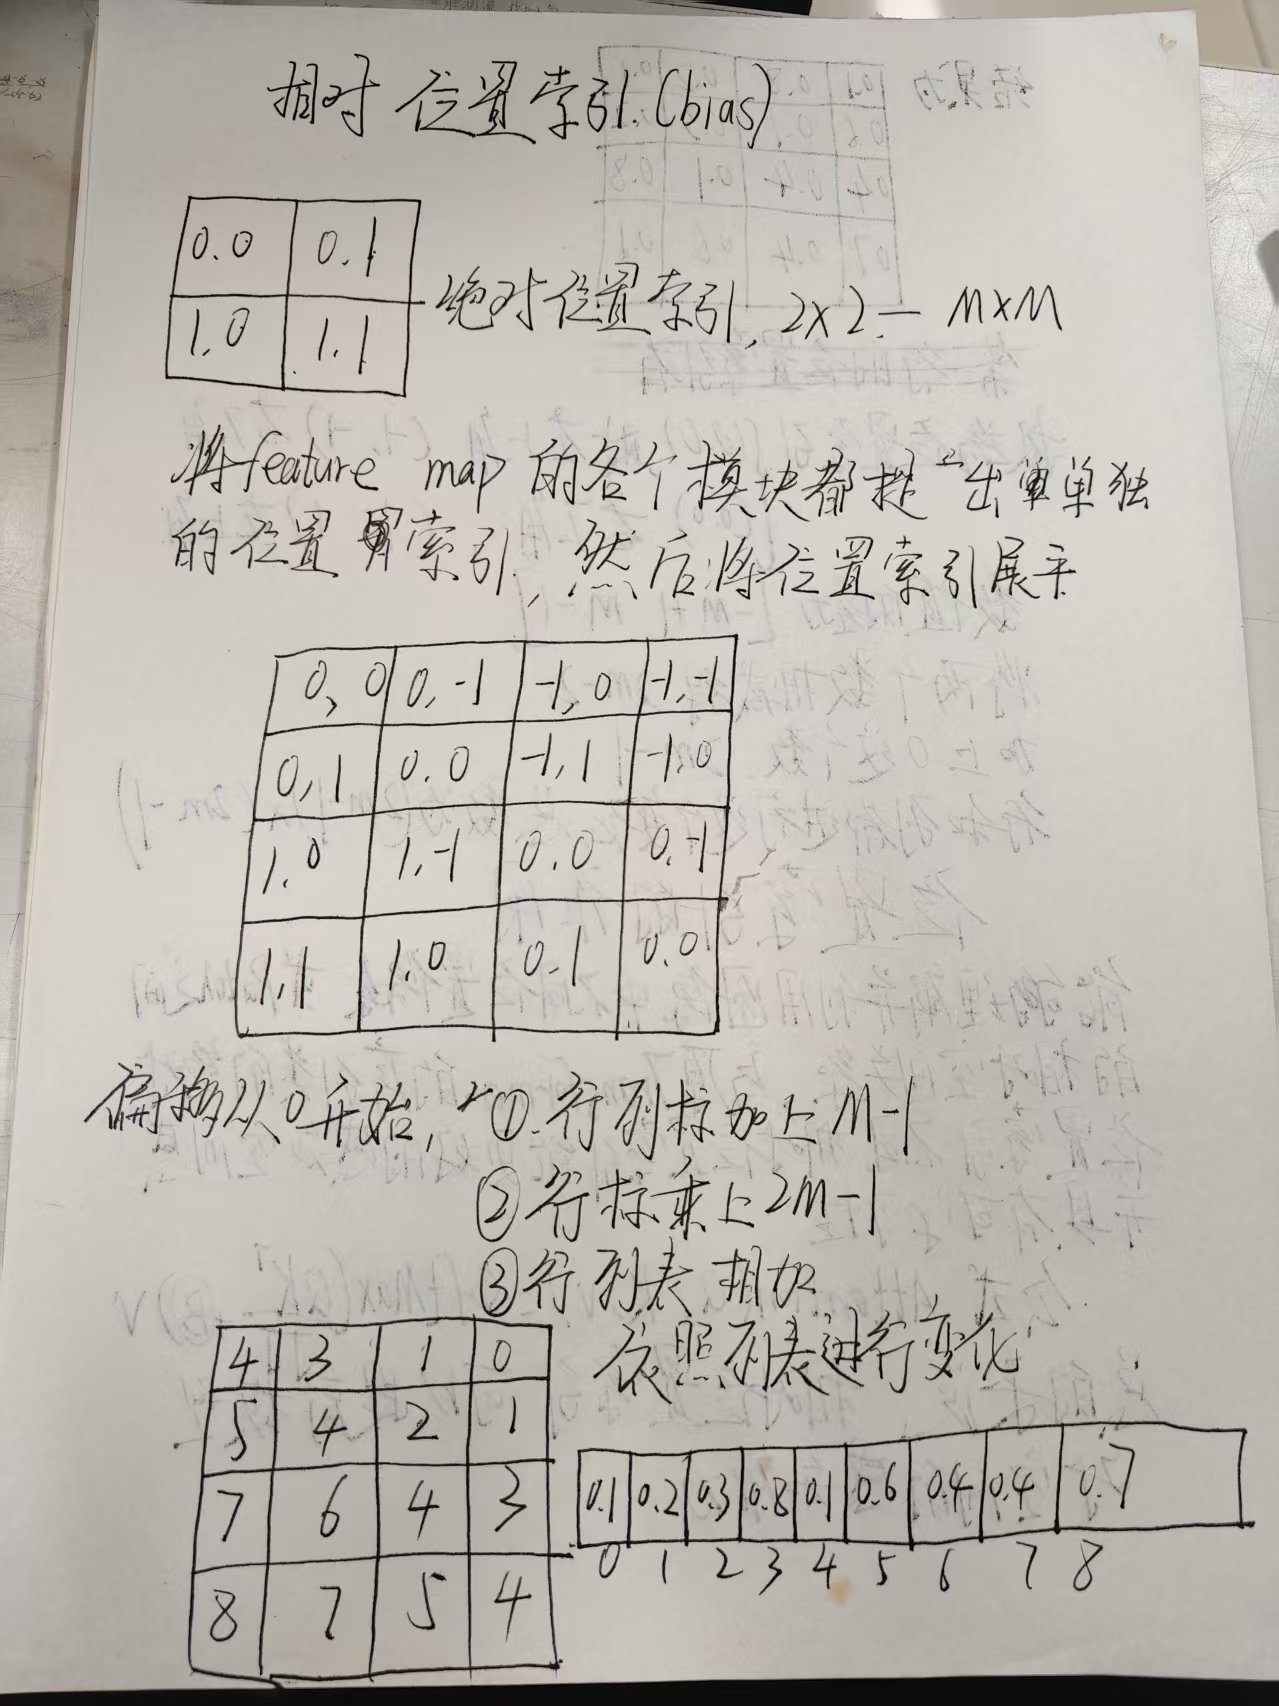 相对位置索引.(bias)
0.0 0.1
1.0 1.1
绝对位置索引, 2×2 — M×M
将feature map的各个模块都提出单单独
的位置索引, 然后将位置索引展平
0,0 0,-1 -1,0 -1,-1
0,1 0.0 -1,1 -1.0
1.0 1,-1 0.0 0.-1
1,1 1.0 0.1 0.0
偏移从0开始, ①.行列标加上M-1
②行标乘上2M-1
③行列表相加
依照列表进行变化
4 3 1 0
5 4 2 1
7 6 4 3
8 7 5 4
0.1 0.2 0.3 0.8 0.1 0.6 0.4 0.4 0.7
0 1 2 3 4 5 6 7 8